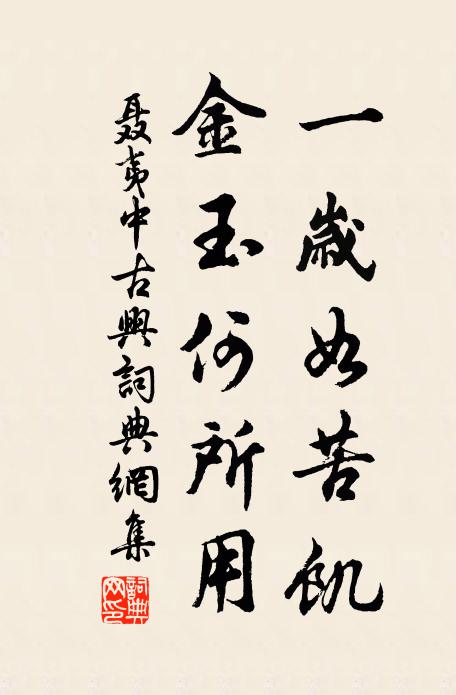 一歲如苦飢
金玉何所用
聶夷中古典詞典網集